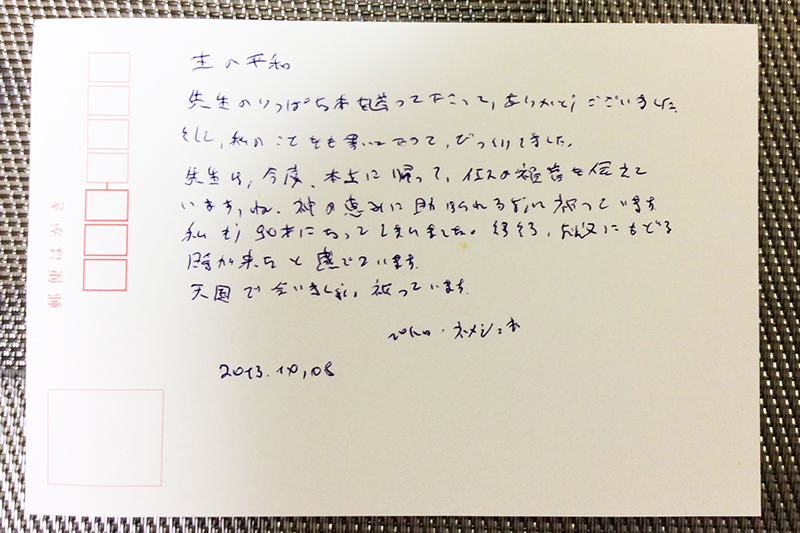 主の平和
先生のりっぱな本を送って下さって、ありがとうございました
そして、私のことをも書いて下って、びっくりしました。
先生は、今度、本土に帰って、の福音を伝えて
いますね。神の恵みに助けられるように祈っています
私もう90才になってしまいました。に もどる
時が来たと感じています
天国で会いましょう。祈っています
ペトロ・ネメシェギ
2013.10,08
郵便はがき